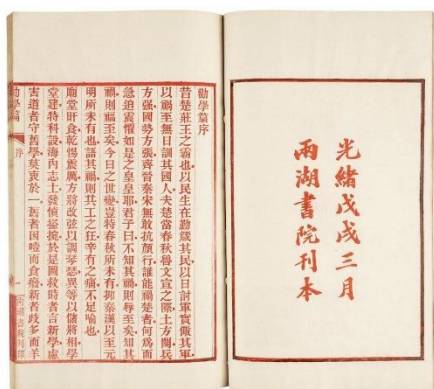 光緒戊戌三月
兩湖書院刊本
勸學篇序
昔楚莊王之霸也以民生在勤箴其民以日討軍實儆其軍
以禍至無日訓其國人夫楚當春秋魯文宣之際土方闢兵
方强國勢方張齊晉秦宋無敢抗顏行誰能禍楚者何爲而
急迫震懼如是之皇皇耶君子曰不知其禍則辱至矣知其
禍則福至矣今日之世變豈特春秋所未有抑秦漢以至元
明所未有也語其禍則共工之狂辛有之痛不足喻也
廟堂旰食乾惕震厲方將改弦以調琴瑟異等以儲將相學
堂建特科設海內志士發憤搤捥於是圖救時者言新學慮
害道者守舊學莫衷於一舊者因噎而食廢新者歧多而羊
勸學篇
序